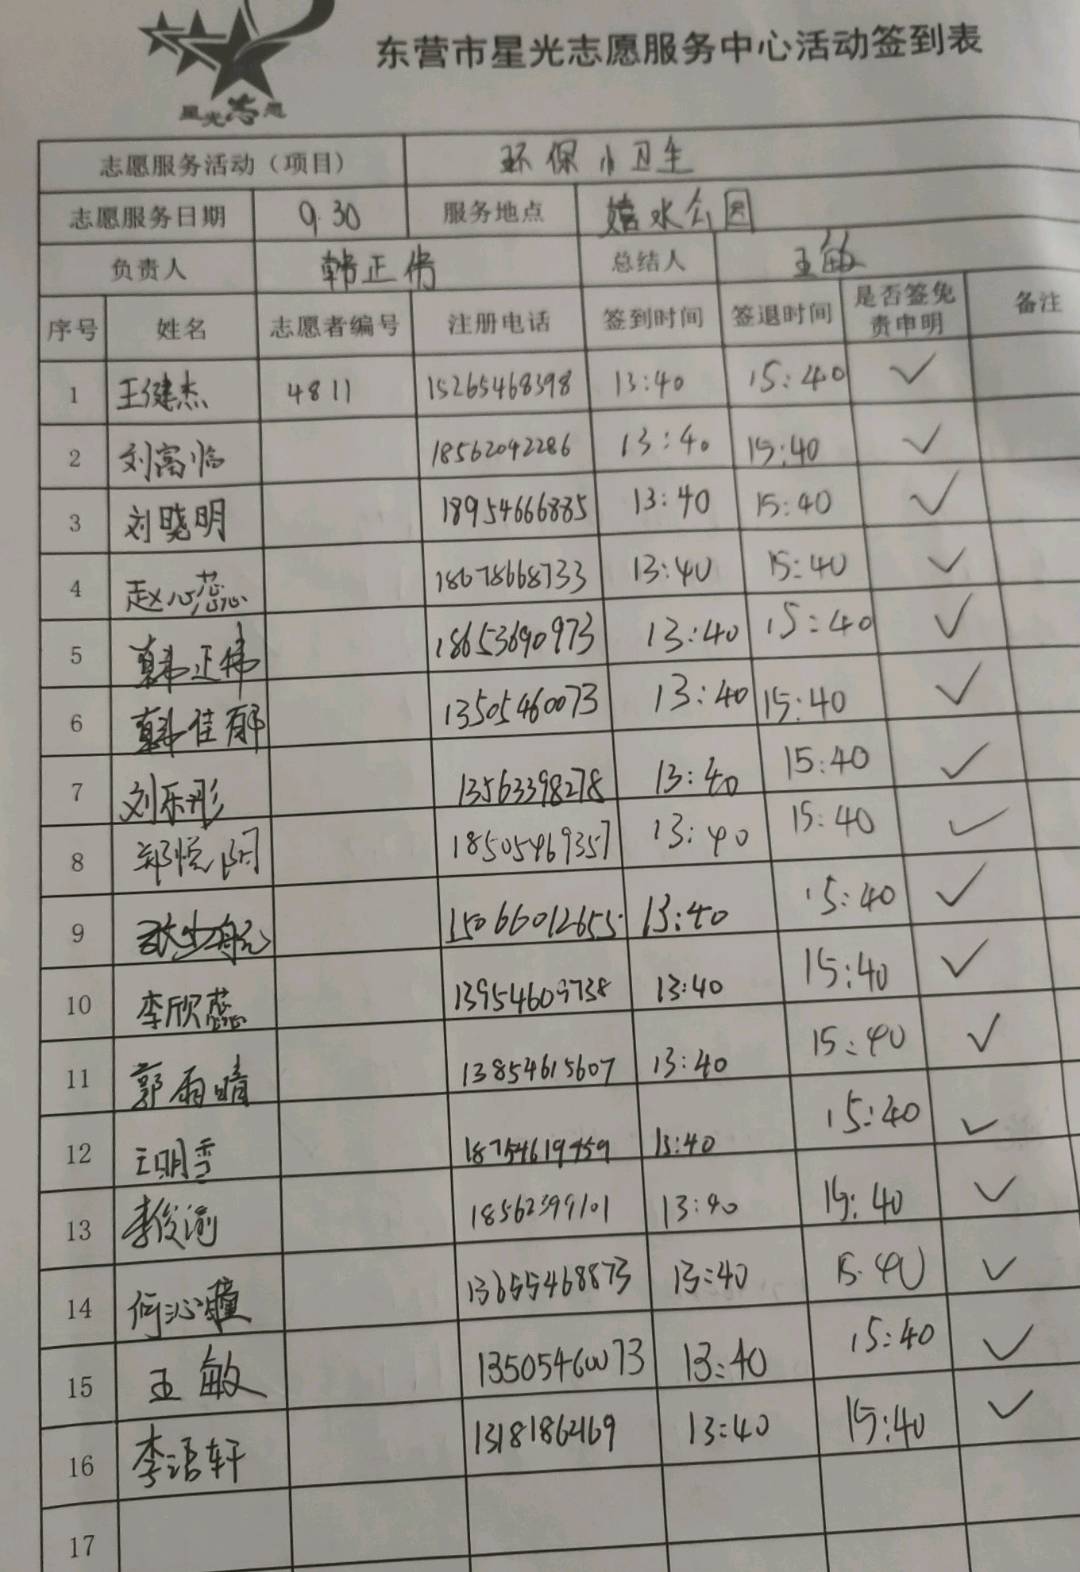 星光志愿
东营市星光志愿服务中心活动签到表
志愿服务活动（项目） 环保小卫生
志愿服务日期 9.30 服务地点 嬉水公园
负责人 韩正伟 总结人 王敏
序号 姓名 志愿者编号 注册电话 签到时间 签退时间 是否签免责申明 备注
1 王健杰 4811 15265468398 13:40 15:40 ✓
2 刘富临 18562042286 13:40 15:40 ✓
3 刘晓明 18954666885 13:40 15:40 ✓
4 赵心蕊 18678668733 13:40 15:40 ✓
5 韩正伟 18653690973 13:40 15:40 ✓
6 韩佳郁 13505460073 13:40 15:40 ✓
7 刘乐彤 13563398278 13:40 15:40 ✓
8 郑悦阳 18505469357 13:40 15:40 ✓
9 15066012655 13:40 15:40 ✓
10 李欣蕊 13954609738 13:40 15:40 ✓
11 郭雨晴 13854615607 13:40 15:40 ✓
12 王明雪 18754619459 13:40 15:40 ✓
13 李俊渝 18562399101 13:40 15:40 ✓
14 何沁瞳 13655468873 13:40 15:40 ✓
15 王敏 13505460073 13:40 15:40 ✓
16 李浯轩 13181862169 13:40 15:40 ✓
17